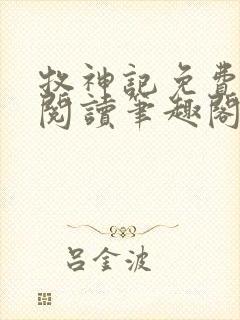 牧神記免費
閱讀筆趣閣
呂金波